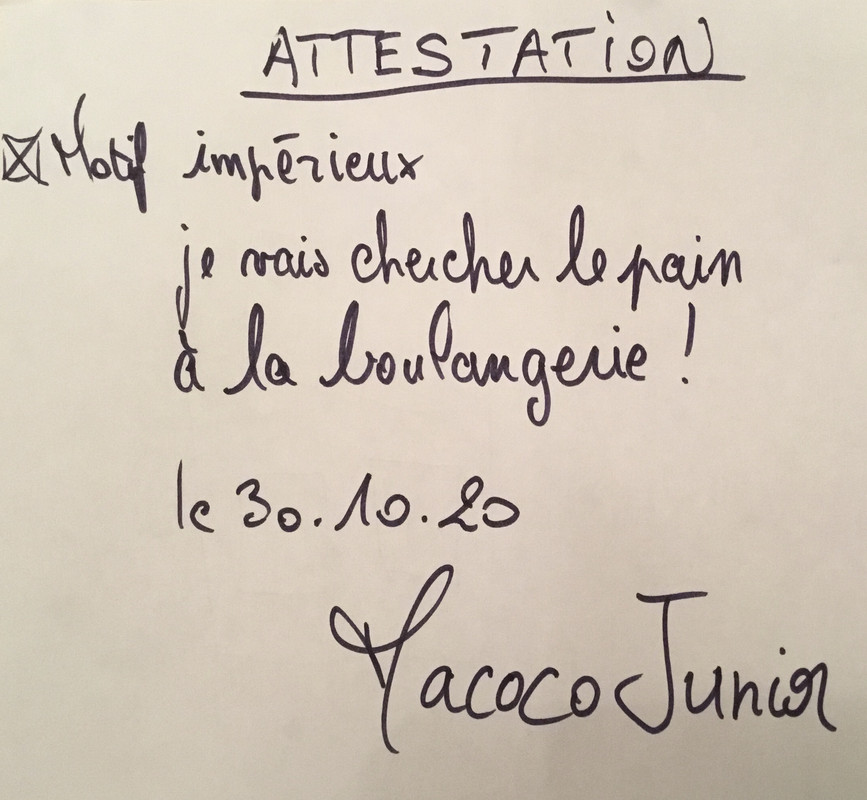 ATTESTATION
☒ Motif impérieux
je vais chercher le pain
à la boulangerie !
le 30.10.20
Macoco Junior